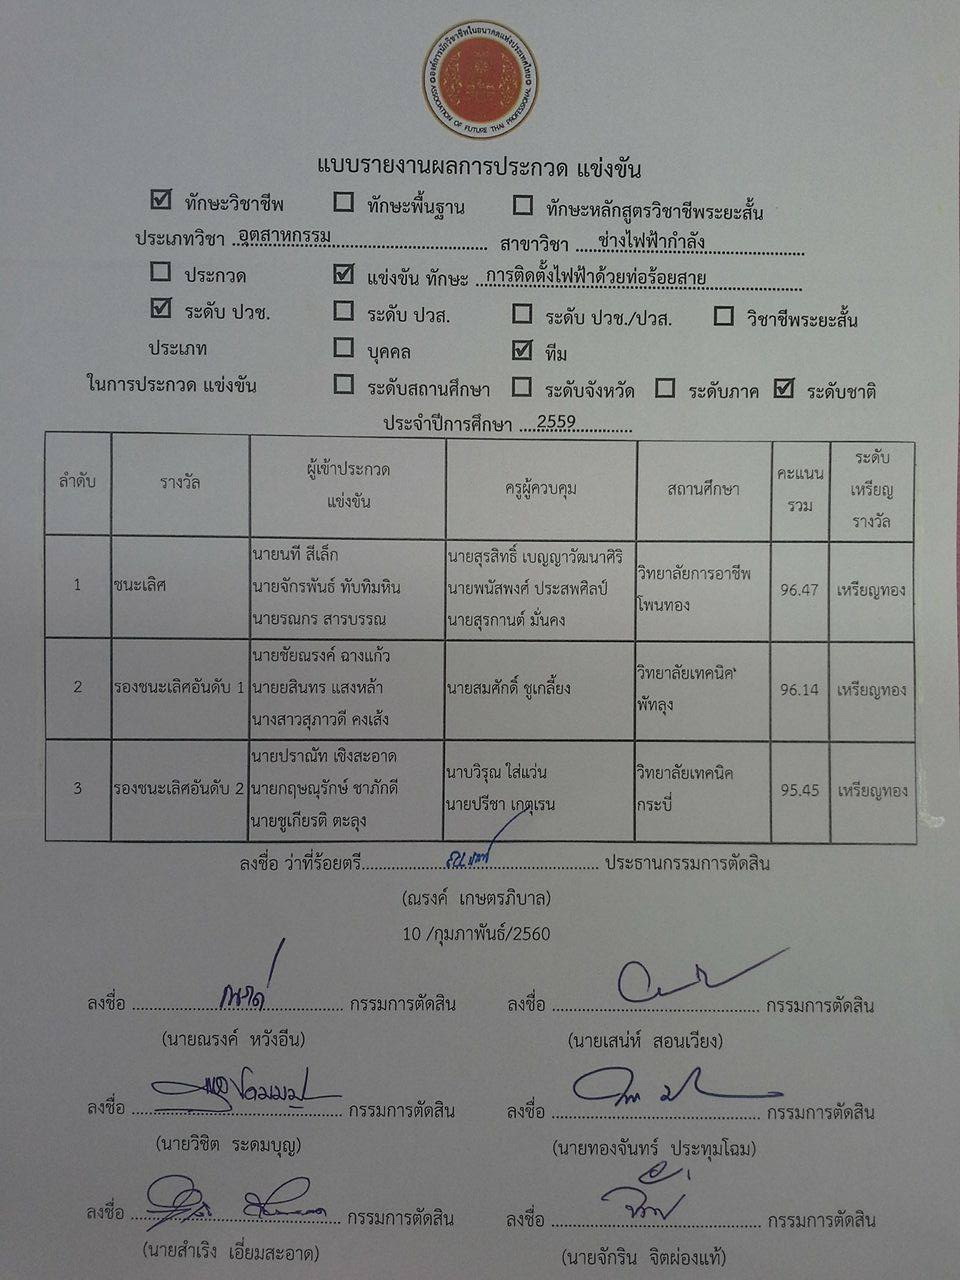 องค์การนักวิชาชีพในอนาคตแห่งประเทศไทย
ASSOCIATION OF FUTURE THAI PROFESSIONAL
แบบรายงานผลการประกวด แข่งขัน
ทักษะวิชาชีพ ทักษะพื้นฐาน ทักษะหลักสูตรวิชาชีพระยะสั้น
ประเภทวิชา อุตสาหกรรม สาขาวิชา ช่างไฟฟ้ากำลัง
ประกวด แข่งขัน ทักษะ การติดตั้งไฟฟ้าด้วยท่อร้อยสาย
ระดับ ปวช. ระดับ ปวส. ระดับ ปวช./ปวส. วิชาชีพระยะสั้น
ประเภท บุคคล ทีม
ในการประกวด แข่งขัน ระดับสถานศึกษา ระดับจังหวัด ระดับภาค ระดับชาติ
ประจำปีการศึกษา 2559
ลำดับ รางวัล ผู้เข้าประกวด แข่งขัน ครูผู้ควบคุม สถานศึกษา คะแนน รวม ระดับ เหรียญ รางวัล
นายนที สีเล็ก นายสุรสิทธิ์ เบญญาวัฒนาศิริ
1 ชนะเลิศ นายจักรพันธ์ ทับทิมหิน นายพนัสพงศ์ ประสพศิลป์ วิทยาลัยการอาชีพ โพนทอง 96.47 เหรียญทอง
นายรณกร สารบรรณ นายสุรกานต์ มั่นคง
นายชัยณรงค์ ฉางแก้ว
2 รองชนะเลิศอันดับ 1 นายยสินทร แสงหล้า นายสมศักดิ์ ชูเกลี้ยง วิทยาลัยเทคนิค พัทลุง 96.14 เหรียญทอง
นางสาวสุภาวดี คงเส้ง
นายปราณัท เชิงสะอาด นาบวิรุณ ใส่แว่น
3 รองชนะเลิศอันดับ 2 นายกฤษณุรักษ์ ชาภักดี นายปรีชา เกตุเรน วิทยาลัยเทคนิค กระบี่ 95.45 เหรียญทอง
นายชูเกียรติ ตะลุง
ลงชื่อ ว่าที่ร้อยตรี ประธานกรรมการตัดสิน
(ณรงค์ เกษตรภิบาล)
10 /กุมภาพันธ์/2560
ลงชื่อ กรรมการตัดสิน ลงชื่อ กรรมการตัดสิน
(นายณรงค์ หวังอีน) (นายเสน่ห์ สอนเวียง)
ลงชื่อ กรรมการตัดสิน ลงชื่อ กรรมการตัดสิน
(นายวิชิต ระดมบุญ) (นายทองจันทร์ ประทุมโฉม)
ลงชื่อ กรรมการตัดสิน ลงชื่อ กรรมการตัดสิน
(นายสำเริง เอี่ยมสะอาด) (นายจักริน จิตผ่องแท้)